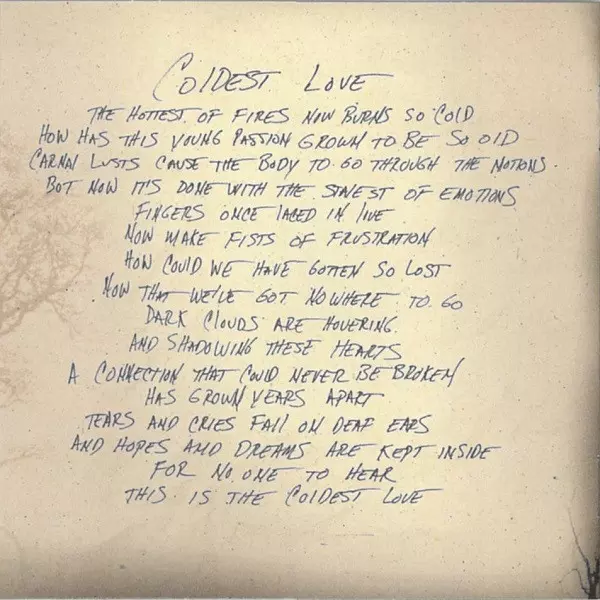 COLDEST LOVE
THE HOTTEST OF FIRES NOW BURNS SO COLD
HOW HAS THIS YOUNG PASSION GROWN TO BE SO OLD
CARNAL LUSTS CAUSE THE BODY TO GO THROUGH THE MOTIONS.
BUT NOW IT'S DONE WITH THE OF EMOTIONS
FINGERS ONCE LACED IN
NOW MAKE FISTS OF FRUSTRATION
HOW COULD WE HAVE GOTTEN SO LOST
NOW THAT WE'VE GOT NOWHERE TO GO
DARK CLOUDS ARE HOVERING.
AND SHADOWING THESE HEARTS
A CONNECTION THAT COULD NEVER BE BROKEN
HAS GROWN YEARS APART
TEARS AND CRIES FALL ON DEAF EARS
AND HOPES AND DREAMS ARE KEPT INSIDE
FOR NO ONE TO HEAR
THIS IS THE COLDEST LOVE